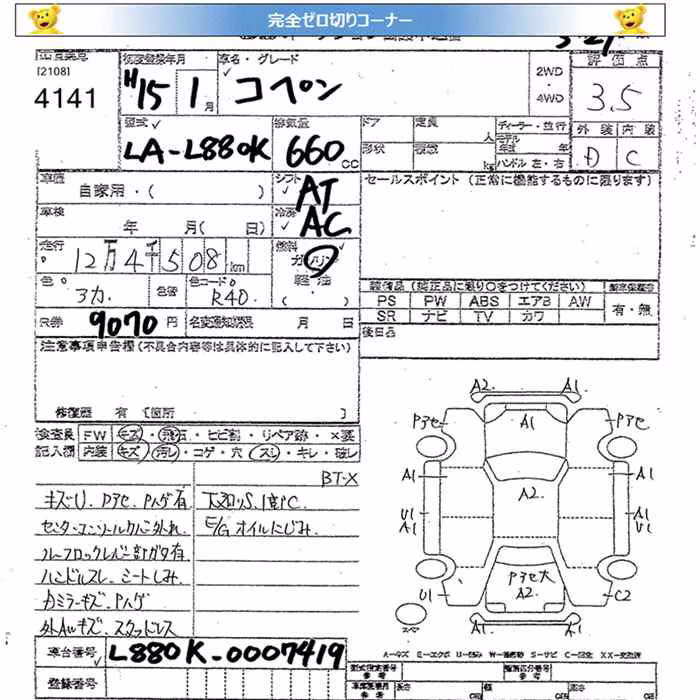 完全ゼロ切りコーナー
[2108]
4141
初度登録年月
H15 1月
車名・グレード
コペン
2WD
・
4WD
評価点
3.5
外装 内装
D C
型式
LA-L880K
排気量
660cc
ドア
定員
人
形状
積載
kg
ディーラー・並行
モデル年式 年
ハンドル 左・右
車歴
自家用・( )
シフト
AT
車検
年 月( 日)
冷房
AC
セールスポイント (正常に機能するものに限ります)
走行
12万4千508km
燃料
ガソリン
軽油
( )
色
3カ.
色替
色コードNo
R40.
装備品 (純正品に限り○をつけてください)
PS PW ABS エアB AW
SR ナビ TV カワ
有・無
R券
9070円
名変通知期限
月 日
後日品
注意事項申告欄(不具合内容等は具体的に記入して下さい)
修復歴 有 [箇所 ]
検査員 FW キズ・飛石・ヒビ割・リペア跡・×要
記入欄 内装 キズ・汚レ・コゲ・穴・スレ・キレ・破レ
BT-X
キズU、Pアセ、Pハゲ有
下廻りS.1部PC.
センターコンソールクバー外れ.
E/Gオイルにじみ.
ルーフロックレバー部ガタ有
ハンドルスレ、シートしみ.
カミラーキズ・Pハゲ
外AWキズ・スタッドレス
A2. A1.
Pアセ A1 Pアセ
A1 A1
A2.
U1 A1
A1 U1
Pアセ大
A2.
U1 C2
スペア
A1 A1
車台番号
L880K-0007419
登録番号
型式指定番号
参考
類別区分番号
参考
長さ